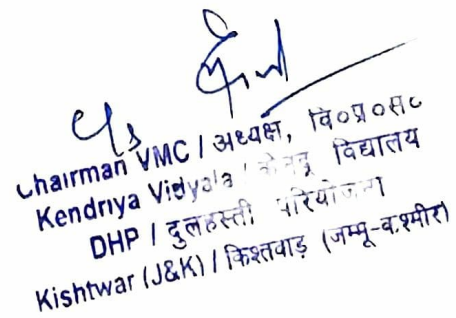 Chairman VMC / अध्यक्ष, वि०प्र०स०
Kendriya Vidyala / केन्द्र विद्यालय
DHP / दुलहस्ती परियोजना
Kishtwar (J&K) / किश्तवाड़ (जम्मू-कश्मीर)